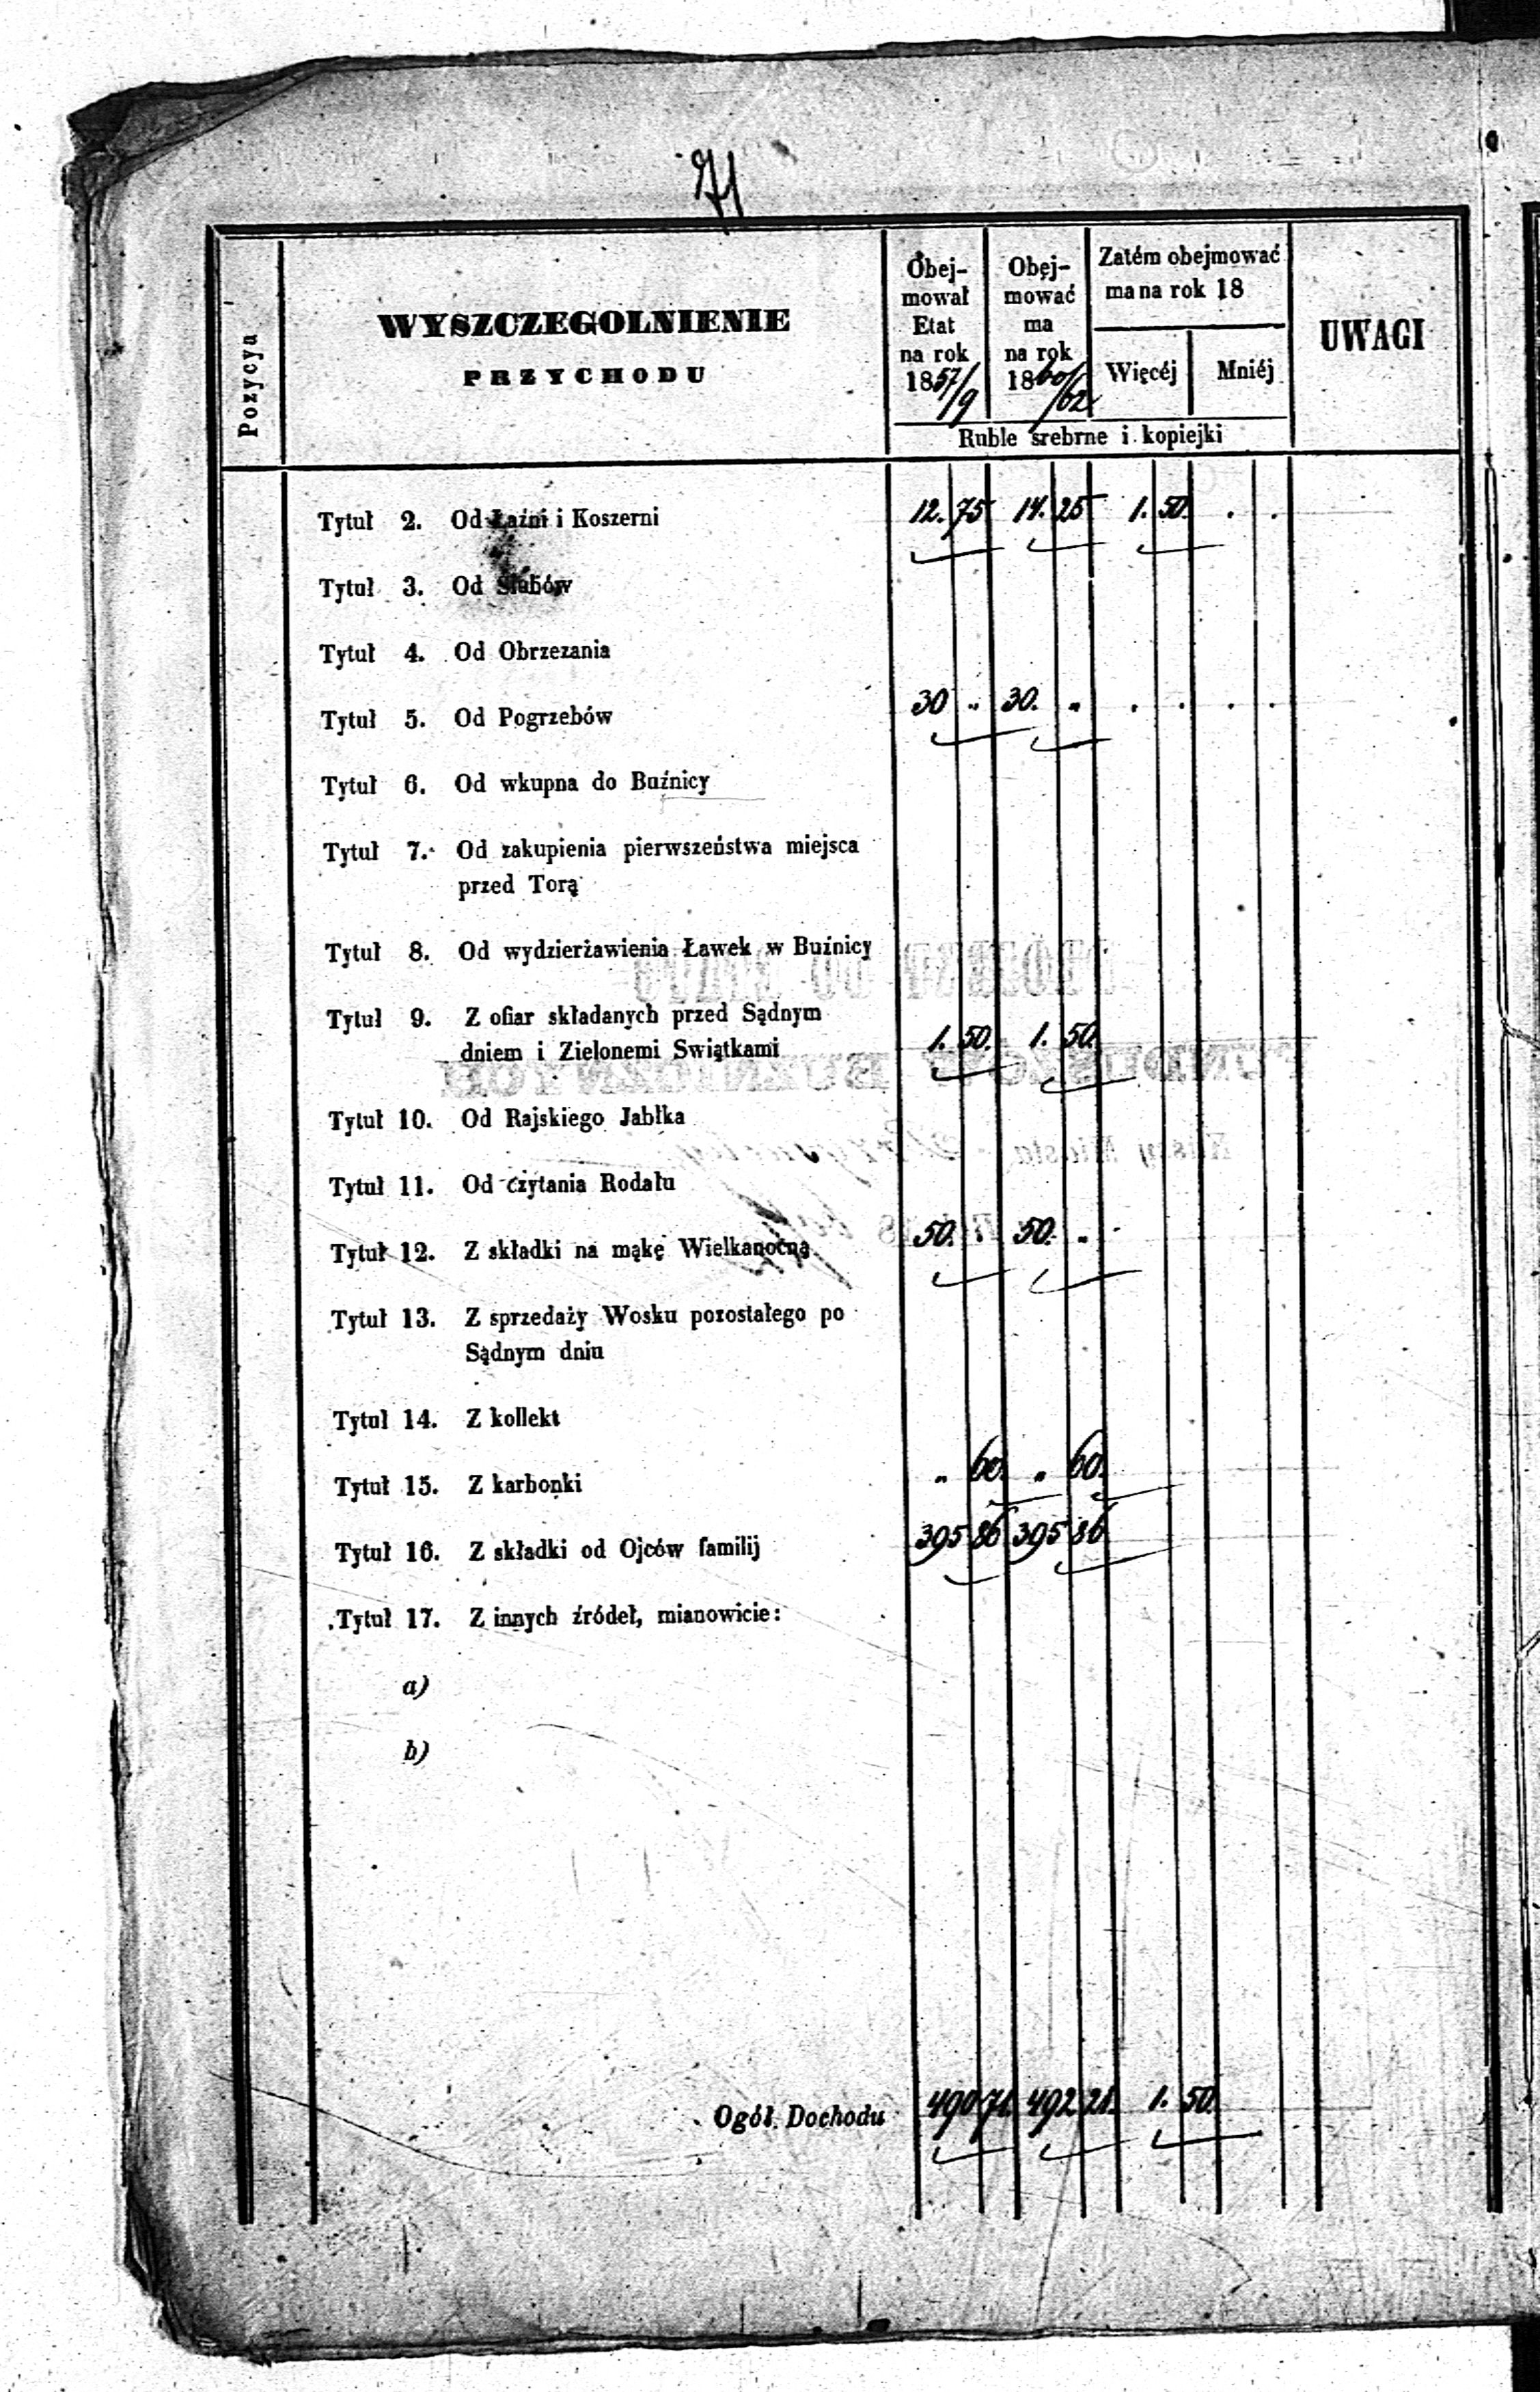 71
Pozycya
WYSZCZEGOLNIENIE
PRZYCHODU
Obej-
mował
Etat
na rok
1857/9
Obej-
mować
ma
na rok
1860/62
Zatém obejmować
ma na rok 18
Więcéj Mniéj
UWAGI
Ruble srebrne i kopiejki
Tytuł 2. Od Łaźni i Koszerni 12. 75 14. 25 1. 50. . .
Tytuł 3. Od Slubów
Tytuł 4. Od Obrzezania
Tytuł 5. Od Pogrzebów 30 „ 30. „ . . . .
Tytuł 6. Od wkupna do Buźnicy
Tytuł 7. Od zakupienia pierwszeństwa miejsca
przed Torą
Tytuł 8. Od wydzierżawienia Ławek w Buźnicy
Tytuł 9. Z ofiar składanych przed Sądnym
dniem i Zielonemi Swiątkami 1. 50. 1. 50.
Tytuł 10. Od Rajskiego Jabłka
Tytuł 11. Od czytania Rodału
Tytuł 12. Z składki na mąkę Wielkanocną 50. „ 50. „
Tytuł 13. Z sprzedaży Wosku pozostałego po
Sądnym dniu
Tytuł 14. Z kollekt
Tytuł 15. Z karbonki „ 60. „ 60.
Tytuł 16. Z składki od Ojców familij 395 86 395 86
Tytuł 17. Z innych źródeł, mianowicie:
a)
b)
Ogół Dochodu 490 71. 492 21. 1. 50.